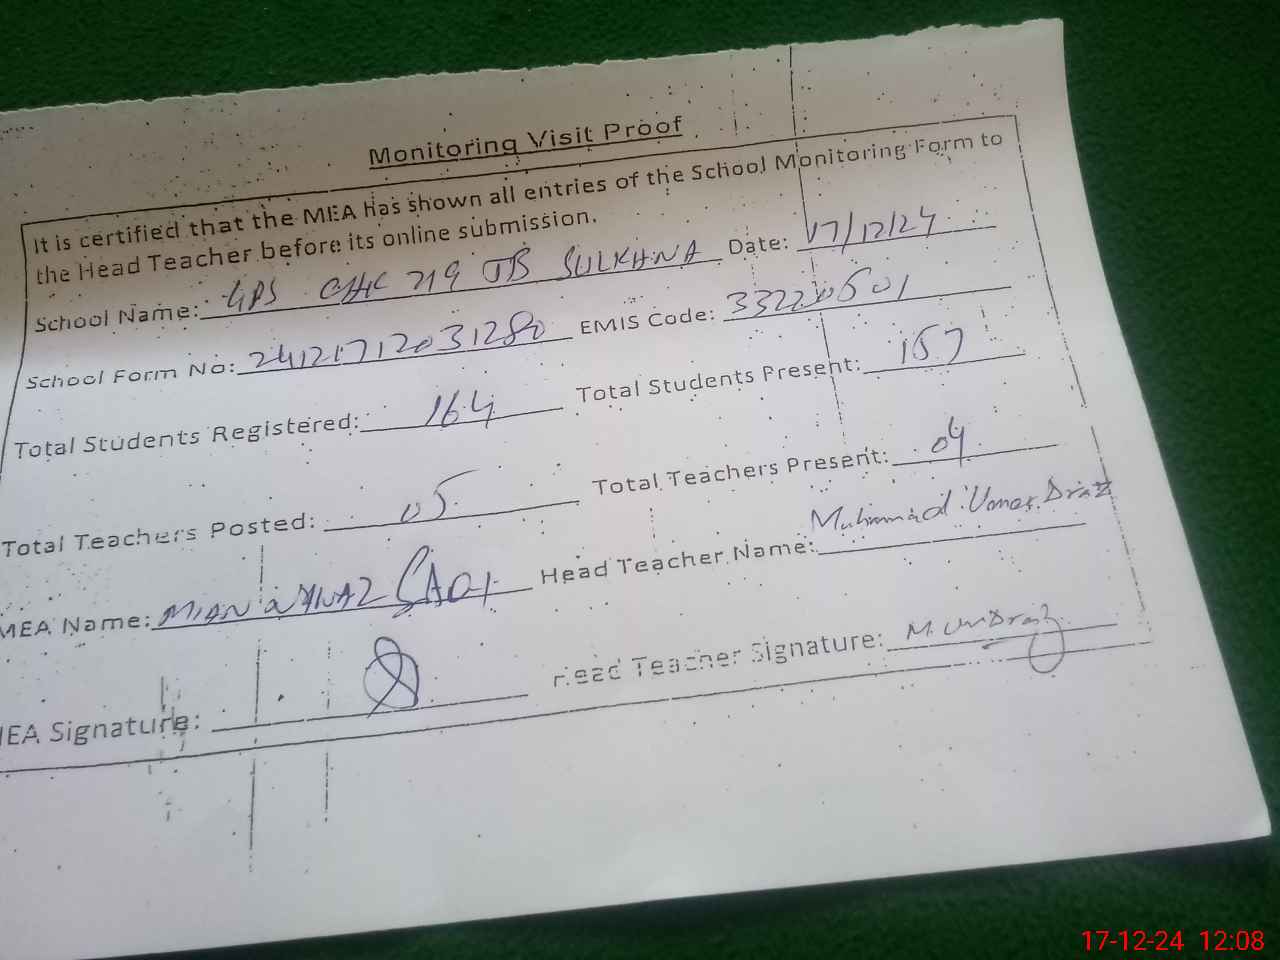 Monitoring Visit Proof
It is certified that the MEA has shown all entries of the School Monitoring Form to
the Head Teacher before its online submission.
School Name: GPS CHK 219 JB SULKHNA Date: 17/12/24
School Form No: 2412171203128 EMIS Code: 33220501
Total Students Registered: 164 Total Students Present: 157
Total Teachers Posted: 05 Total Teachers Present: 04
MEA Name: MIAN Head Teacher Name: Muhammad Umar Draz
MEA Signature: Head Teacher Signature: M. Umar Draz
17-12-24 12:08